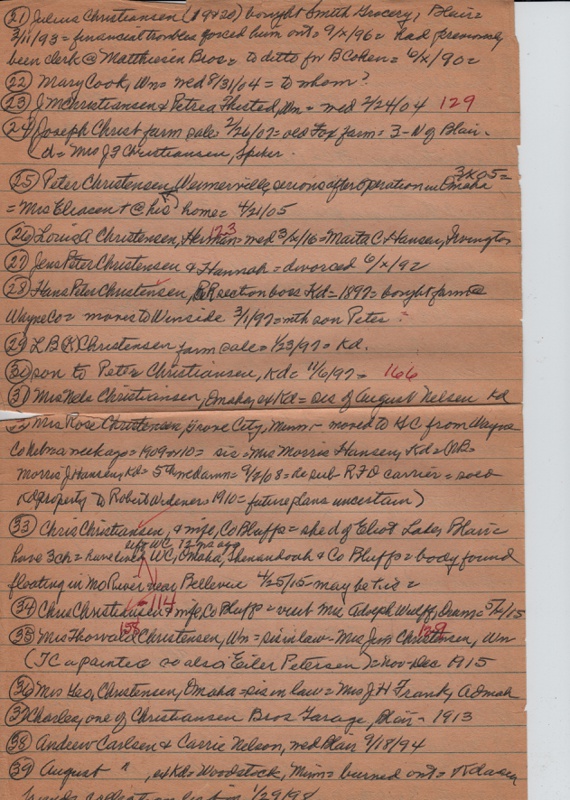 (21) Julius Christiansen (19+20) bought Smith Grocery, Blair =
3/11/93 = financial troubles forced him out = 9/x/96 = had previously
been clerk @ Matthiesen Bros = to ditto for B Cohen = 6/x/90 =
(22) Mary Cook, Wn = wed 8/31/04 = to whom?
(23) J M Christiansen & Petrea Thisted, Wn = wed 2/24/04 129
(24) Joseph Christ farm sale = 2/26/07 = old Fox farm = 3-N of Blair.
(d = Mrs J F Christiansen, Spiker.
(25) Peter Christensen, Wennerville, serious after operation in Omaha 3/x/05 =
= Mrs @ his home = 4/21/05
(26) Louis A Christensen, Herman = wed 3/x/16 = Marta C Hansen, Irvington
123
(27) Jens Peter Christensen & Hannah = divorced 6/x/92
(28) Hans Peter Christensen, RR section boss Kd = 1897 = bought farm @
Wayne Co = moves to Winside 3/1/97 = mth son Peter ?
(29) L B (K) Christensen farm sale = 1/23/97 = Kd.
(30) son to Pete Christiansen, Kd = 11/6/97 = 166
(31) Mrs Nels Christiansen, Omaha, ex Kd = sis of August Nelsen Kd
Mrs Rose Christensen, Grove City, Minn. - moved to GC from Wayne
Co Nebr a week ago = 1909 or 10 = sis = Mrs Morris Hansen, Kd =
Morris J Hansen, Kd = 5th = 9/2/08 = he sub RFD carrier = sold
Kd property to Robert Wideners 1910 = future plans uncertain)
(33) Chris Christiansen, & wife, Co Bluffs = she d of Eliot Lades, Blair =
left WC 12 ms ago
have 3ch = have lived WC, Omaha, Shenandoah & Co Bluffs = body found
floating in Mo River near Bellevue 4/25/15 may be t is =
(34) Chris Christiansen & wife, Co Bluffs = visit Mrs Adolph Wulff, Dram = 5/x/15
114
(35) Mrs Thorvald Christensen, Wn = sis in law - Mrs Jens Christensen, Wn
(JC a painter so also Eiler Petersen) = Nov-Dec 1915
(36) Mrs Geo, Christensen, Omaha = sis in law = Mrs J H Frank, Admah
(37) Charles, one of Christiansen Bros Garage, Blair - 1913
(38) Andrew Carlsen & Carrie Nelson, wed Blair 9/18/94
(39) August ", ex Kd = Woodstock, Minn = burned out =
1/29/98